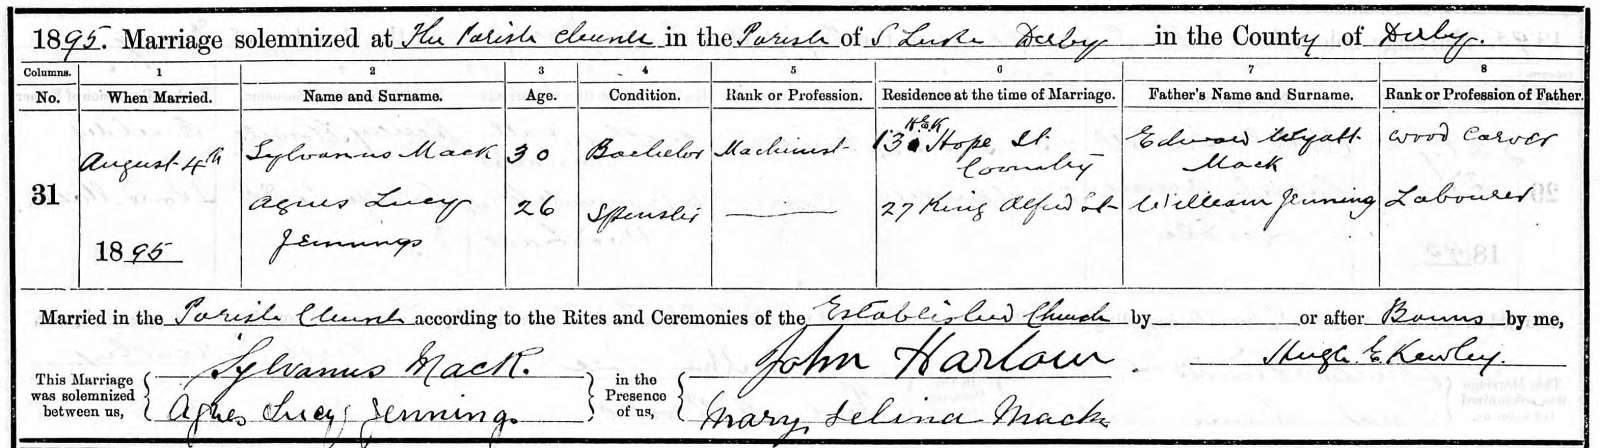 1895. Marriage solemnized at The Parish Church in the Parish of S Luke Derby in the County of Derby.
Columns. 1 2 3 4 5 6 7 8
No. When Married. Name and Surname. Age. Condition. Rank or Profession. Residence at the time of Marriage. Father's Name and Surname. Rank or Profession of Father.
31
August 4th
1895
Sylvanus Mack 30 Bachelor Machinist 13 H.E.K Hope St. Edward Wyatt Wood Carver
Coventry Mack
Agnes Lucy 26 Spinster 27 King Alfred St William Jenning Labourer
Jennings
Married in the Parish Church according to the Rites and Ceremonies of the Established Church by or after Banns by me,
Sylvanus Mack. John Harlow Hugh E. Kewley.
This Marriage was solemnized between us, in the Presence of us,
Agnes Lucy Jennings Mary Selina Mack